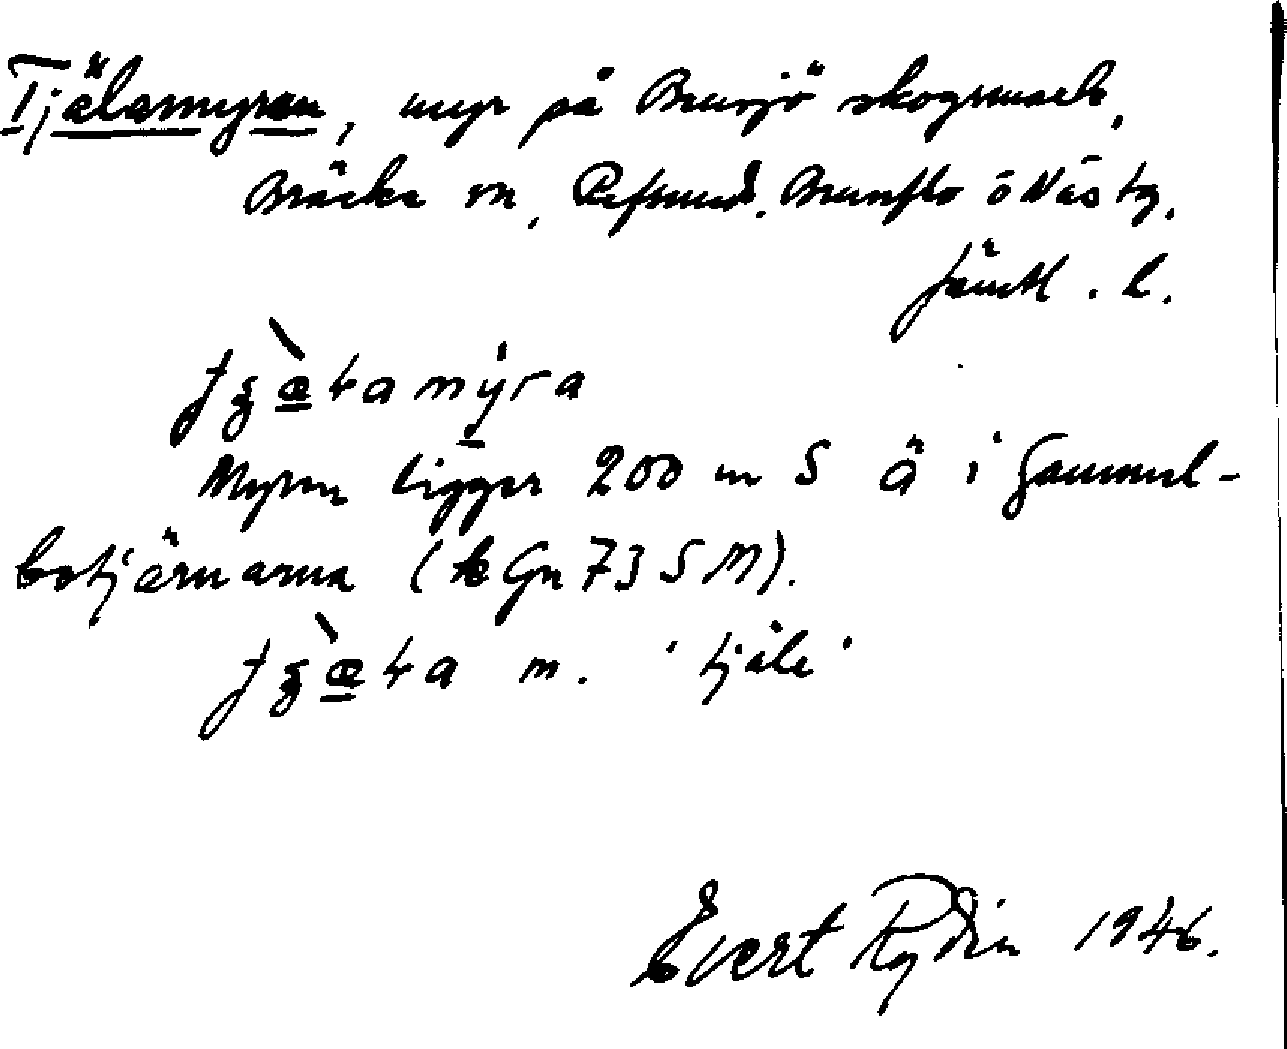 Tjälamyran, myr på Bensjö skogsmark,
Bräcke sn, Refsund, Brunflo o Näs tg,
Jämtl. l.
Myren ligger 200 m S å i Gammel-
botjärnarna (k Gn 73 S M).
m. 'tjäle'
Evert Rydin 1946.